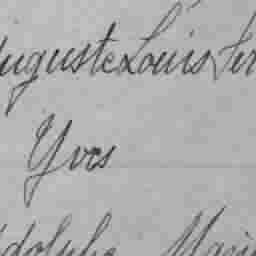 Auguste Louis Fer
Yves
Adolphe Marie